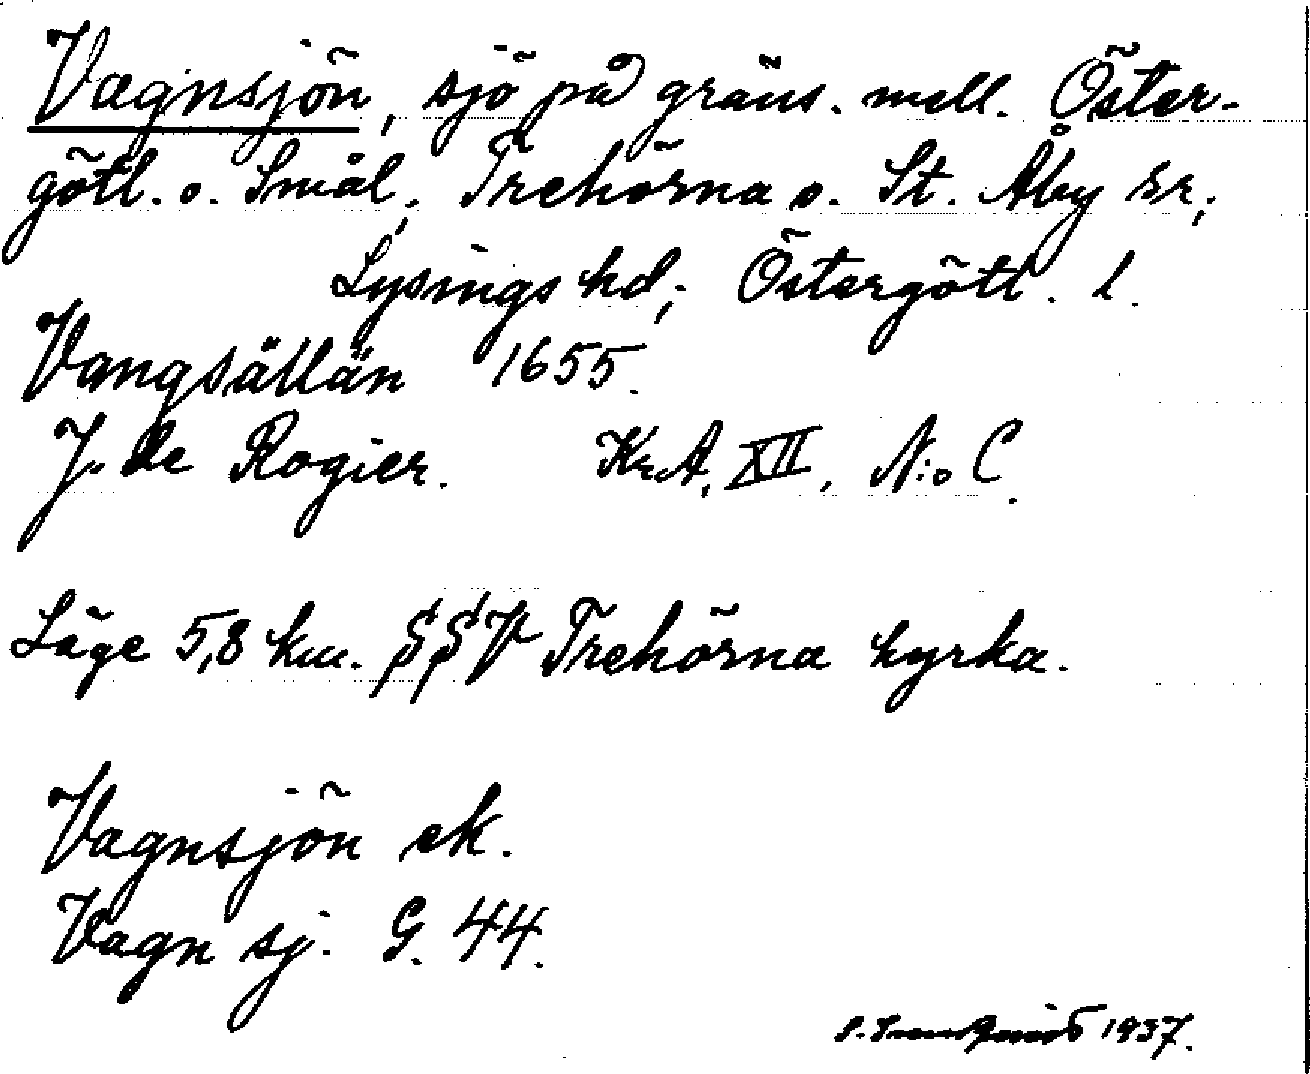 Vagnsjön, sjö på gräns. mell. Öster-
götl. o. Smål., Trehörna o. St. Åby sr,
Lysings hd, Östergötl. l.
Vangsällän 1655.
J. de Rogier. KrA, XII, N:o C.
Läge 5,8 km. SSV Trehörna kyrka.
Vagnsjön ek.
Vagn sj. G. 44.
1937.